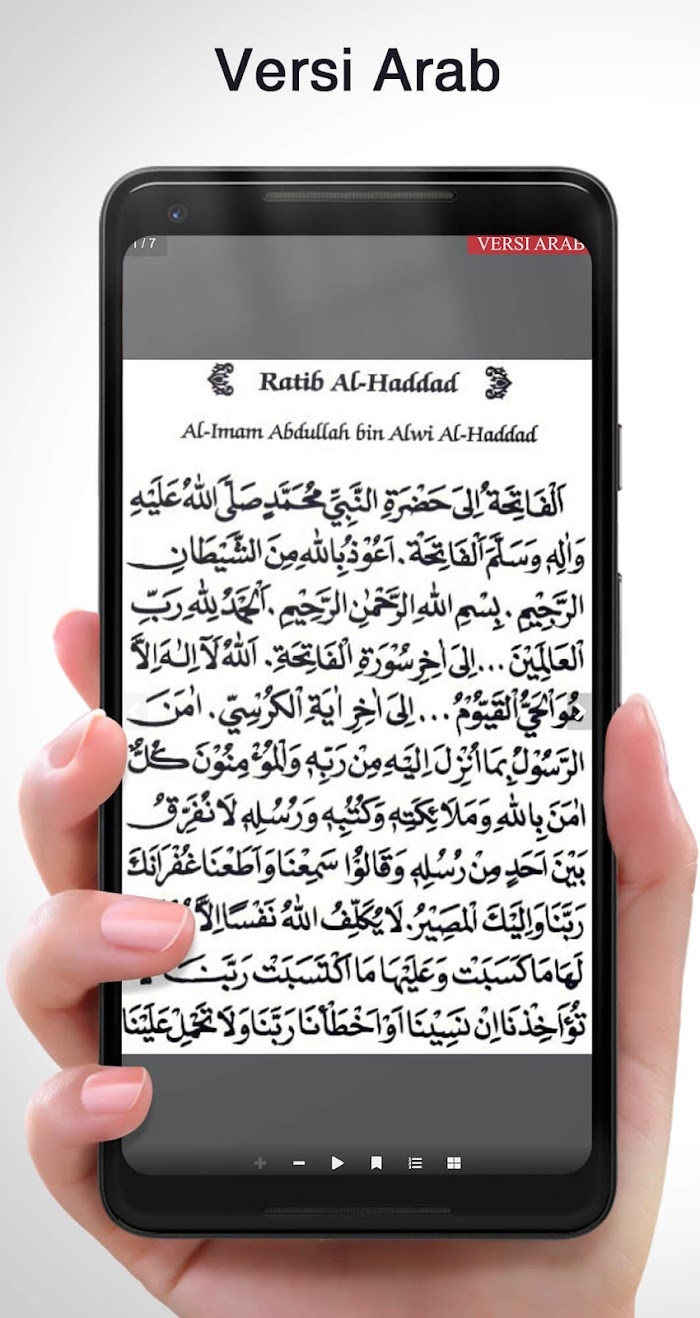 Versi Arab
1 / 7
VERSI ARAB
Ratib Al-Haddad
Al-Imam Abdullah bin Alwi Al-Haddad
اَلْفَاتِحَةُ اِلَى حَضْرَةِ النَّبِيِّ مُحَمَّدٍ صَلَّى اللهُ عَلَيْهِ
وَاٰلِهٖ وَسَلَّمَ اَلْفَاتِحَةْ. اَعُوْذُ بِاللهِ مِنَ الشَّيْطَانِ
الرَّجِيْمِ. بِسْمِ اللهِ الرَّحْمٰنِ الرَّحِيْمِ. اَلْحَمْدُ لِلّٰهِ رَبِّ
الْعَالَمِيْنَ... اِلَى اٰخِرِ سُوْرَةِ الْفَاتِحَةِ. اَللهُ لَآ اِلٰهَ اِلَّا
هُوَ الْحَيُّ الْقَيُّوْمُ... اِلَى اٰخِرِ اٰيَةِ الْكُرْسِيّ. اٰمَنَ
الرَّسُوْلُ بِمَا اُنْزِلَ اِلَيْهِ مِنْ رَبِّهٖ وَالْمُؤْمِنُوْنَ كُلٌّ
اٰمَنَ بِاللهِ وَمَلَائِكَتِهٖ وَكُتُبِهٖ وَرُسُلِهٖ لَا نُفَرِّقُ
بَيْنَ اَحَدٍ مِنْ رُسُلِهٖ وَقَالُوْا سَمِعْنَا وَاَطَعْنَا غُفْرَانَكَ
رَبَّنَا وَاِلَيْكَ الْمَصِيْرُ. لَا يُكَلِّفُ اللهُ نَفْسًا اِلَّا
لَهَا مَا كَسَبَتْ وَعَلَيْهَا مَا اكْتَسَبَتْ رَبَّنَا
تُؤَاخِذْنَا اِنْ نَسِيْنَا اَوْ اَخْطَأْنَا رَبَّنَا وَلَا تَحْمِلْ عَلَيْنَا